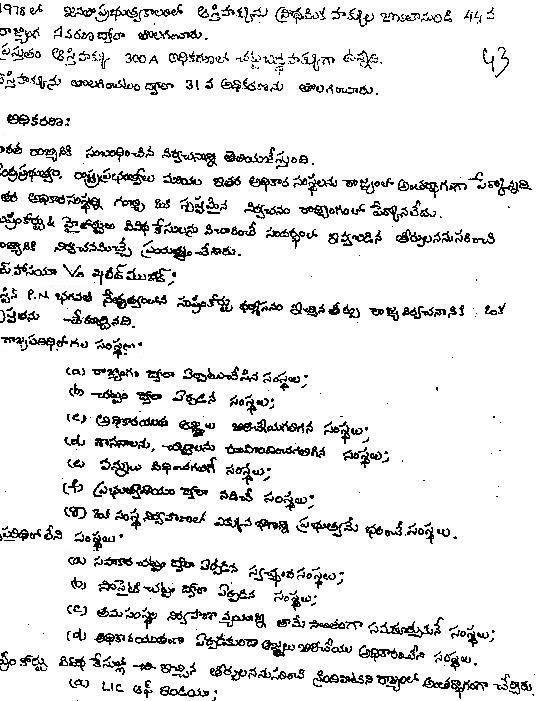 1978 లో జనతాప్రభుత్వకాలంలో ఆస్తిహక్కును ప్రాథమిక హక్కుల జాబితానుండి 44వ
రాజ్యాంగ సవరణ ద్వారా తొలగించారు.
ప్రస్తుతం ఆస్తిహక్కు 300A అధికరణలో చట్టబద్ధ హక్కుగా ఉన్నది.
ఆస్తిహక్కును తొలగించటం ద్వారా 31 వ అధికరణను తొలగించారు.
43
అధికరణ:
భారత రాజ్యానికి సంబంధించిన నిర్వచనాన్ని తెలియజేస్తుంది.
కేంద్రప్రభుత్వం, రాష్ట్రప్రభుత్వాలు మరియు ఇతర అధికార సంస్థలను రాజ్యంలో అంతర్భాగంగా పేర్కొన్నది
ఇతర అధికారసంస్థలు గురించి ఒక స్పష్టమైన నిర్వచనం రాజ్యాంగంలో పేర్కొనలేదు.
సుప్రీంకోర్టు & హైకోర్టులు వివిధ కేసులను విచారించే సందర్భంలో ఇవ్వబడిన తీర్పులననుసరించి
రాజ్యానికి నిర్వచనమిచ్చే ప్రయత్నం చేశారు.
హసియా V/s ఖలీద్ ముజిబ్;
జస్టిస్ P.N భగవతి నేతృత్వంలోని సుప్రీంకోర్టు ధర్మాసనం ఇచ్చిన తీర్పు రాజ్య నిర్వచనానికి ఒక
స్పష్టతను తీసుకొచ్చినది.
రాజ్యపరిధిలోగల సంస్థలు:
(a) రాజ్యాంగం ద్వారా ఏర్పాటుచేసిన సంస్థలు;
(b) చట్టం ద్వారా ఏర్పడిన సంస్థలు;
(c) అధికారయుత ఆజ్ఞలు జారీచేయగలిగిన సంస్థలు;
(d) శాసనాలను, చట్టాలను రూపొందించగలిగిన సంస్థలు;
(e) పన్నులు విధించగలిగే సంస్థలు;
(f) ప్రభుత్వ ద్వారా నడిచే సంస్థలు;
(g) ఒక సంస్థ నిర్వహణలో ఎక్కువ భాగాన్ని ప్రభుత్వమే భరించే సంస్థలు.
పరిధిలో లేని సంస్థలు:
(a) సహకార చట్టం ద్వారా ఏర్పడిన స్వచ్ఛంద సంస్థలు;
(b) సొసైటీ చట్టం ద్వారా ఏర్పడిన సంస్థలు;
(c) తమసంస్థల నిర్వహణా వ్యయాన్ని తామే సొంతంగా సమకూర్చుకునే సంస్థలు;
(d) అధికారయుతంగా ఏర్పడకుండా ఆజ్ఞలు జారీచేయు అధికారంలేని సంస్థలు.
సుప్రీం కోర్టు వివిధ కేసుల్లో ఇచ్చిన తీర్పులననుసరించి క్రిందివాటిని రాజ్యంలో అంతర్భాగంగా చేర్చారు
(a) LIC ఆఫ్ ఇండియా;